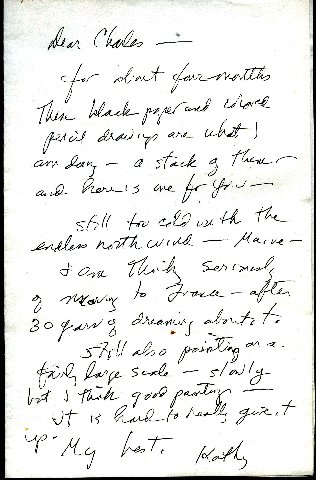 Dear Charles —
for about four months
These black paper and colored
pencil drawings are what I
am doing — a stack of them —
and here is one for you —
still too cold with the
endless north wind — Maine —
I am thinking seriously
of moving to France — after
30 years of dreaming about it.
still also painting on a
fairly large scale — slowly —
but I think good paintings —
it is hard to really give it
up.
My best,
Kathy